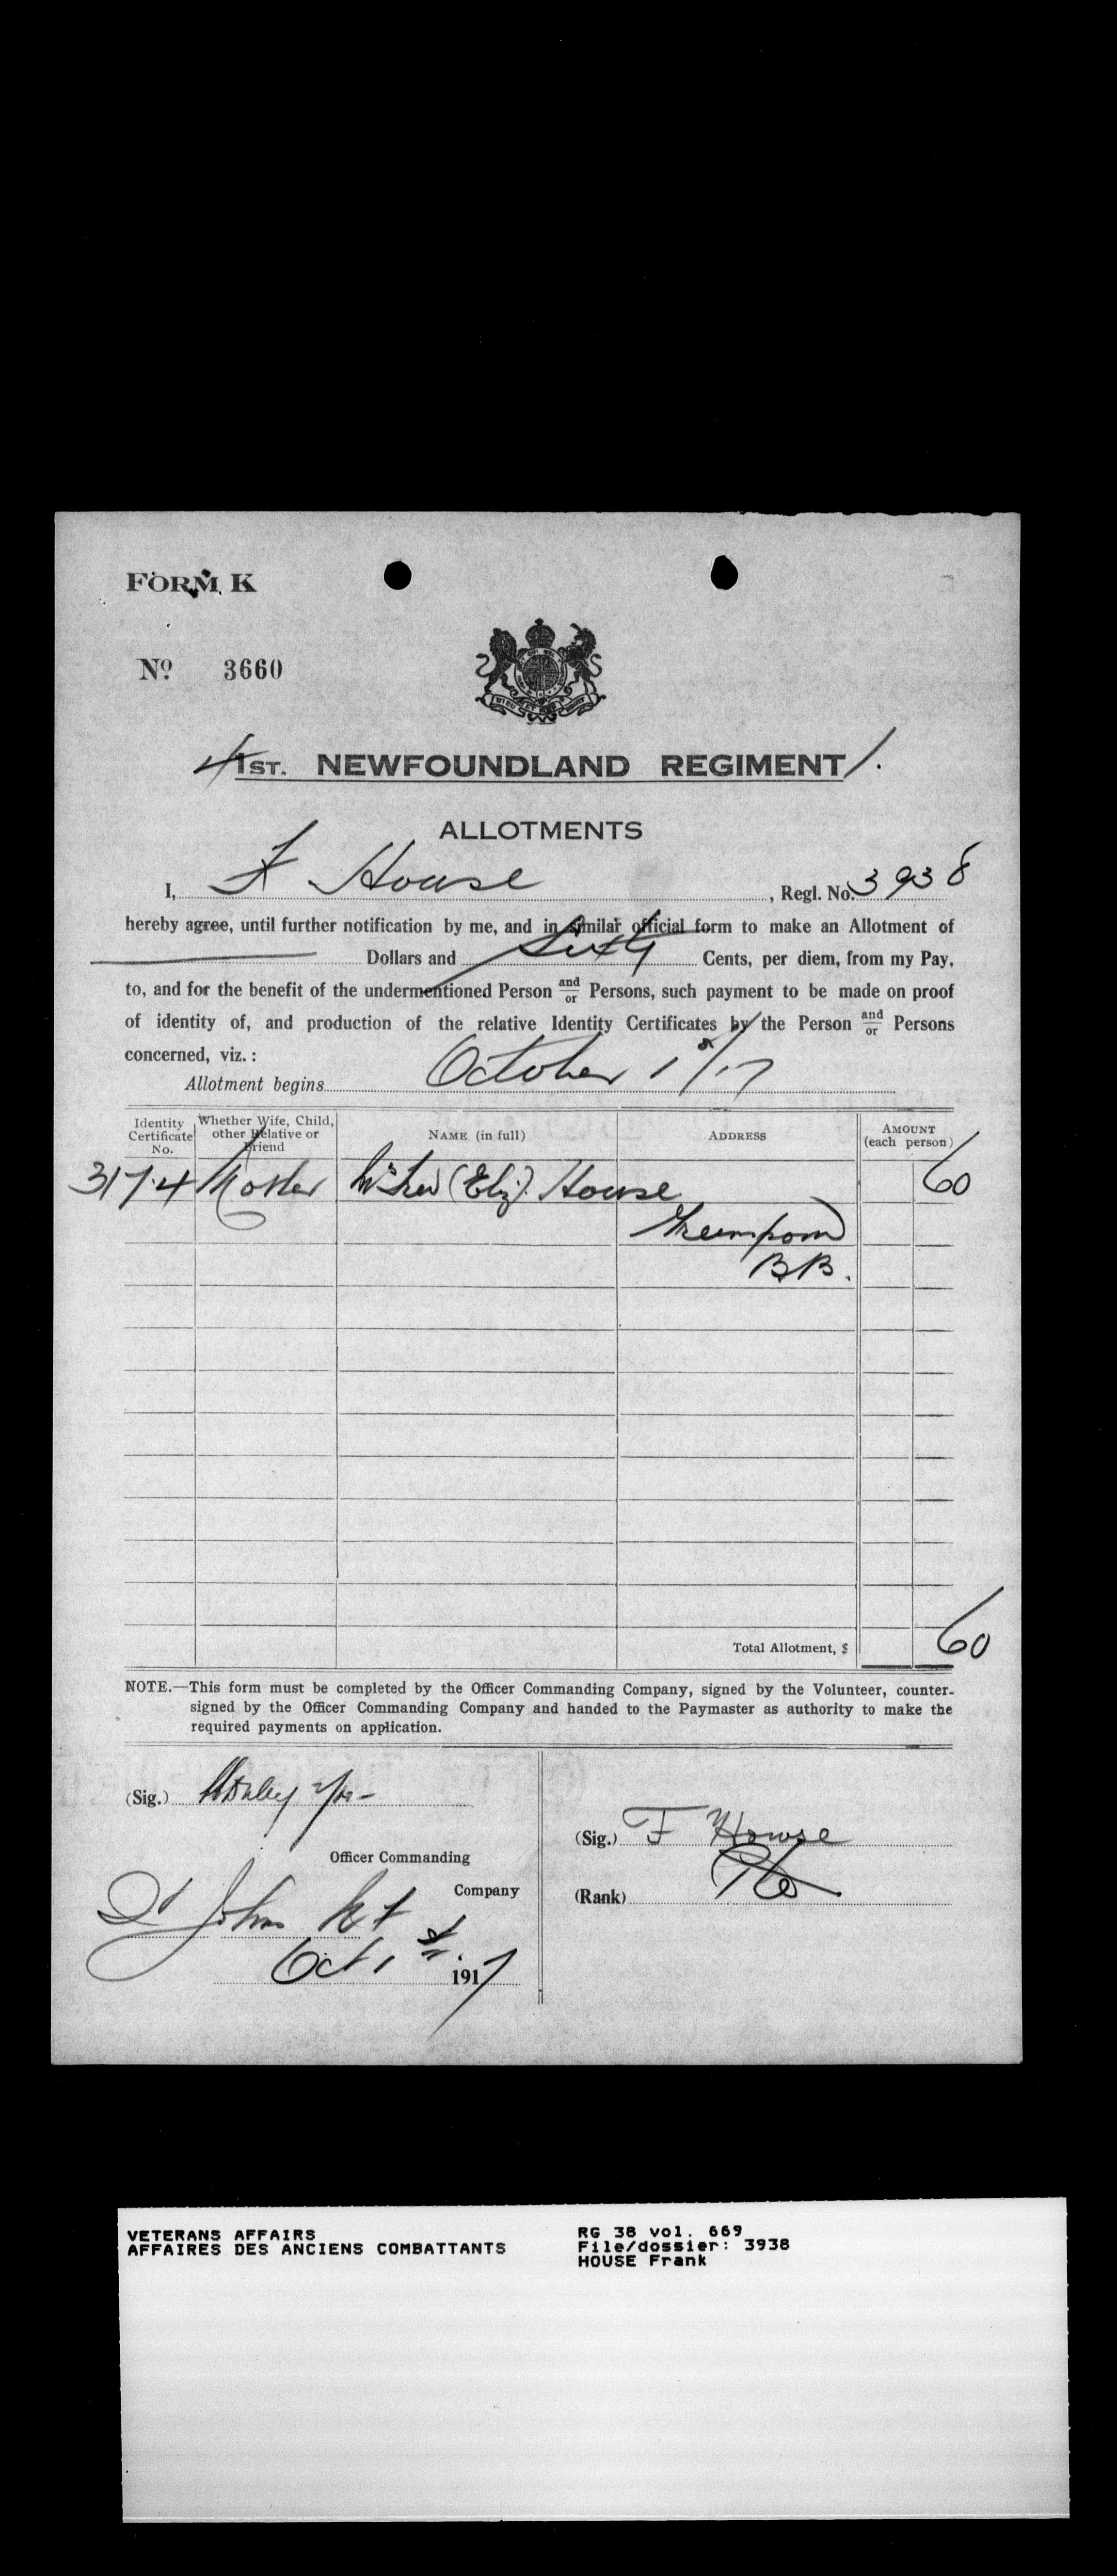 FORM K
No 3660
1ST. NEWFOUNDLAND REGIMENT
ALLOTMENTS
I, F House, Regl. No. 3938
hereby agree, until further notification by me, and in similar official form to make an Allotment of
Dollars and Sixty Cents, per diem, from my Pay,
to, and for the benefit of the undermentioned Person and/or Persons, such payment to be made on proof
of identity of, and production of the relative Identity Certificates by the Person and/or Persons
concerned, viz.:
Allotment begins October 1st/17
Identity Certificate No.
Whether Wife, Child, other Relative or Friend
NAME (in full)
ADDRESS
AMOUNT (each person)
3174 Mother (Eliz). House 60
Greenspond
B.B.
Total Allotment, $ 60
NOTE.—This form must be completed by the Officer Commanding Company, signed by the Volunteer, counter-
signed by the Officer Commanding Company and handed to the Paymaster as authority to make the
required payments on application.
(Sig.)
Officer Commanding
Company
St Johns
Oct 1st 1917
(Sig.) F House
(Rank) Pte
VETERANS AFFAIRS
AFFAIRES DES ANCIENS COMBATTANTS
RG 38 vol. 669
File/dossier: 3938
HOUSE Frank